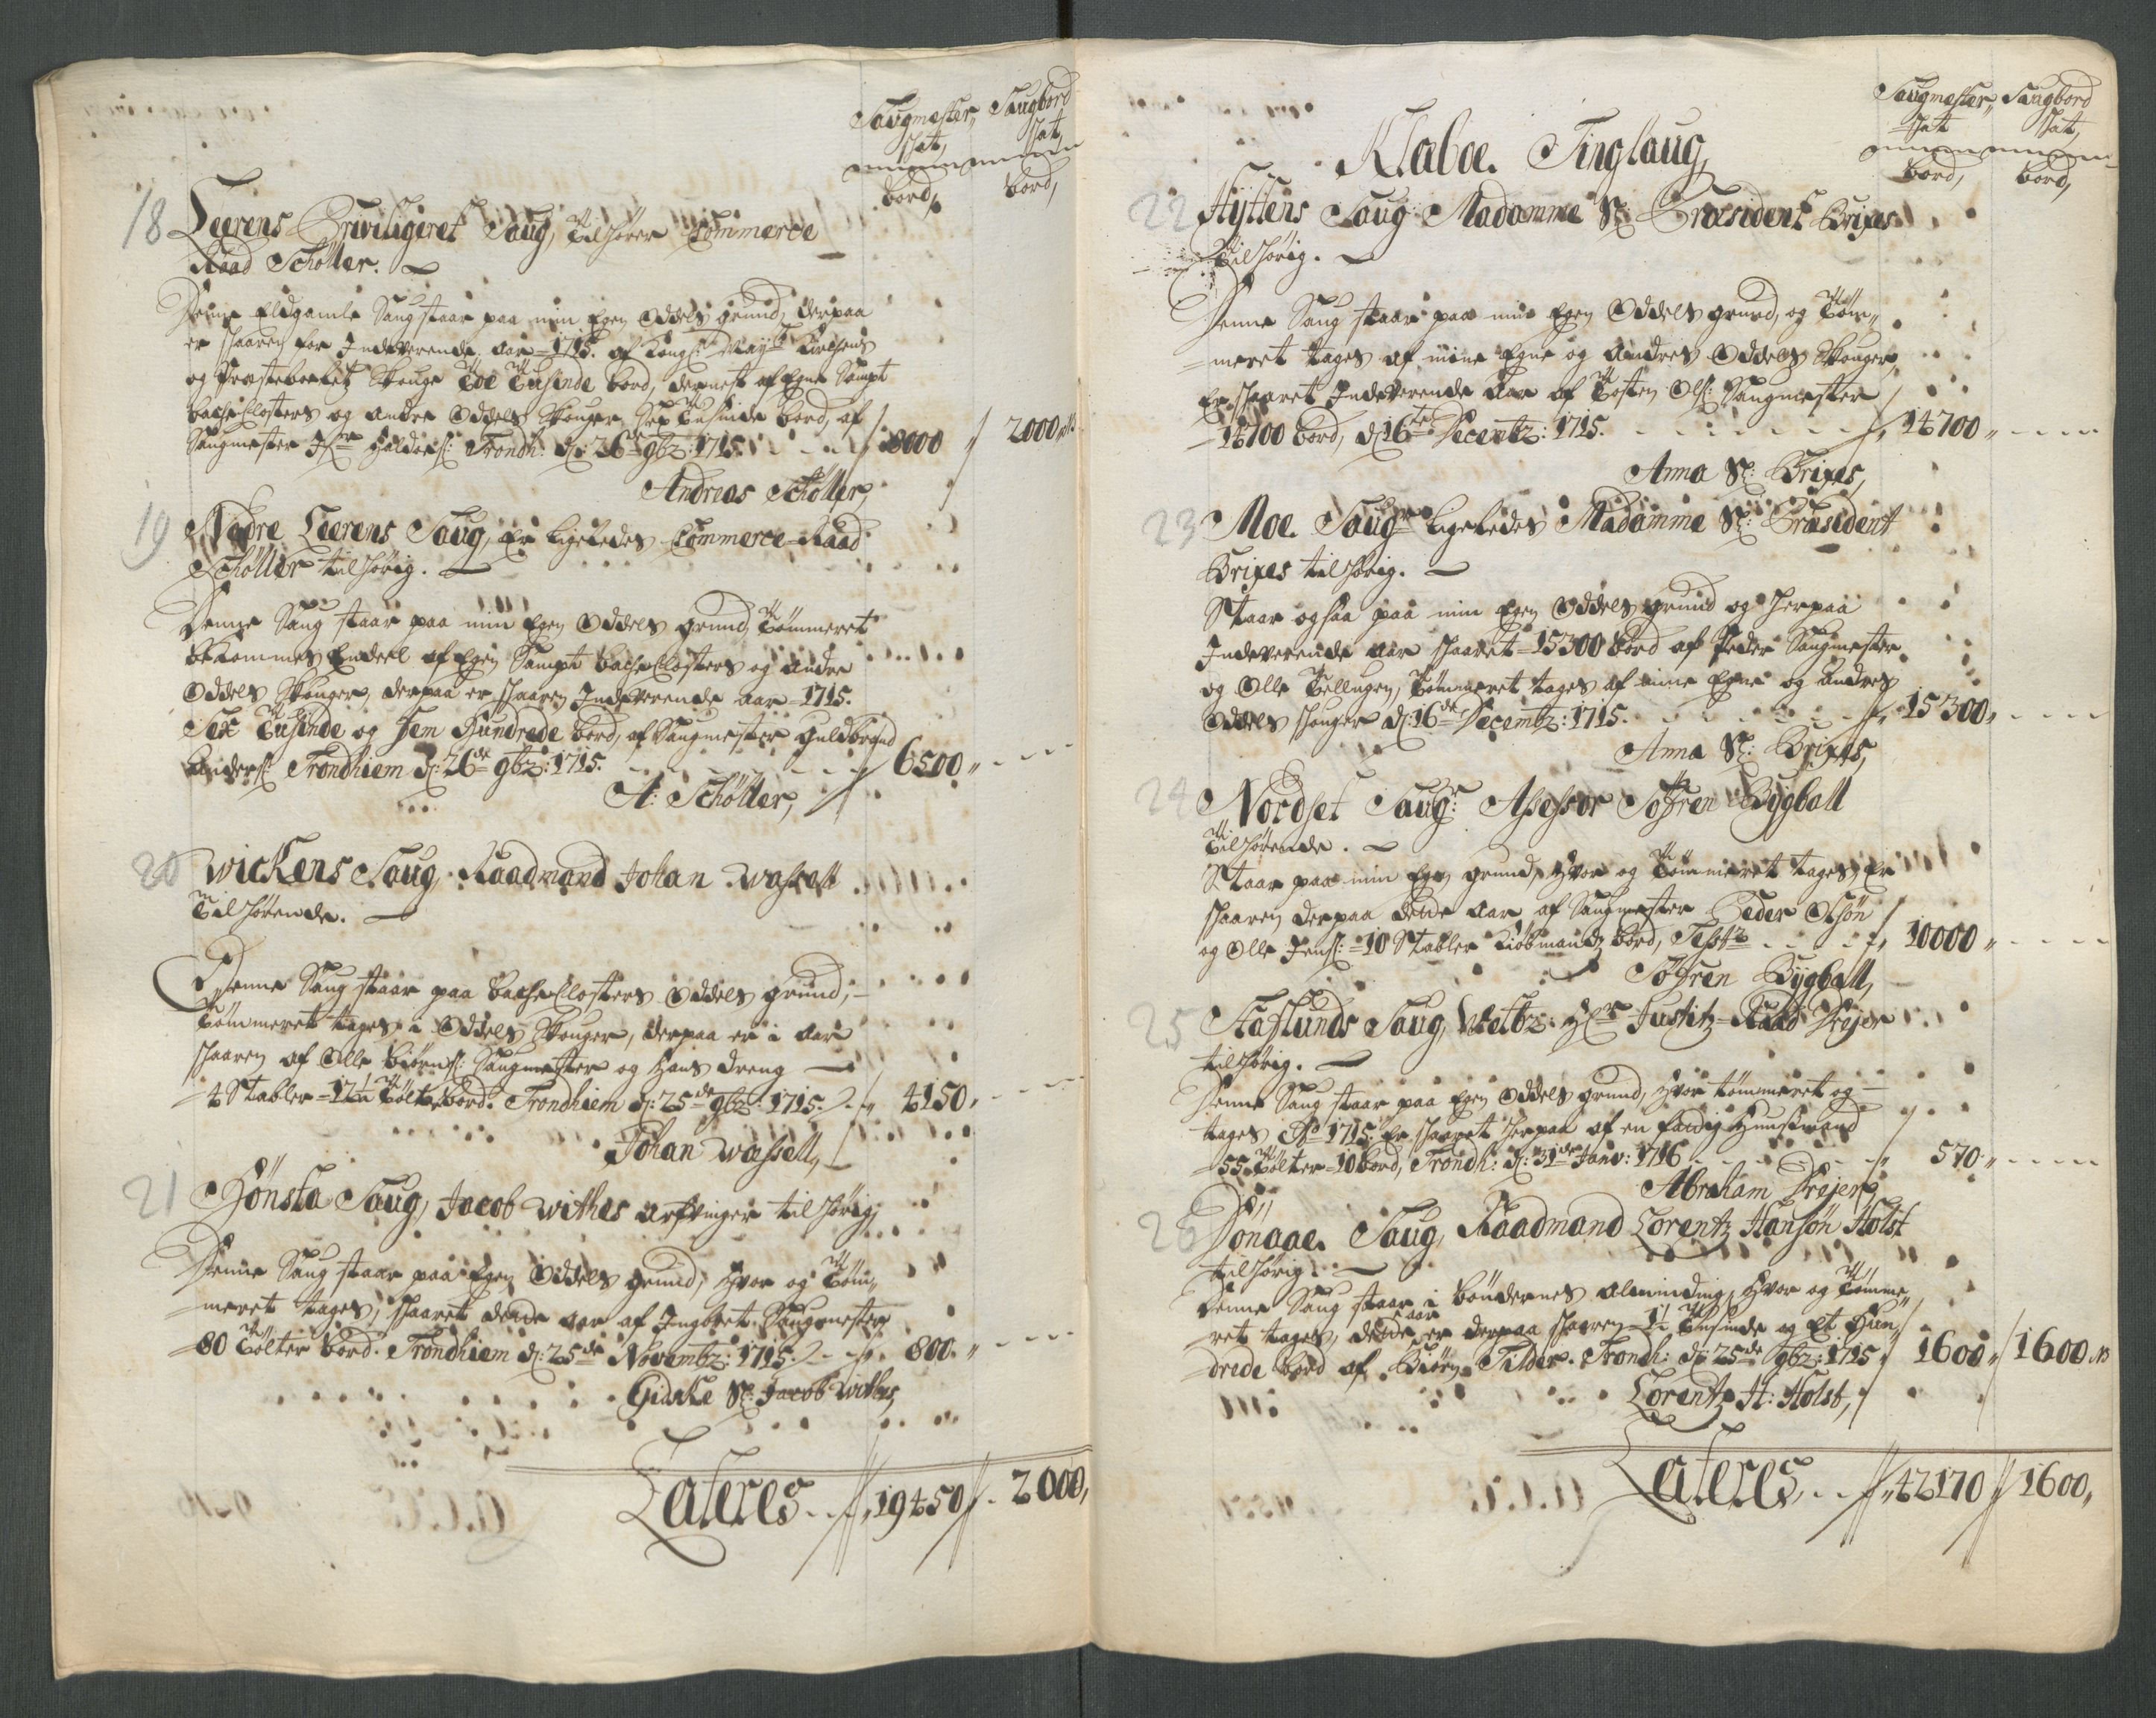 Saugmester, Saugbord
skat, skat,
bord, bord,
18 Leerens Priviligeret Saug, Tilhører Commerce
Raad Schøller.
Denne Eldgamle Saug staar paa min Egen Oddels grund, derpaa
er skaaren for Indeverende aar 1715. af Kongl: Mayts Kirchens
og Præstebolets Skouge Toe Tusinde bord, dernest af Egne Sampt
bache Closters og andre Oddels Skouger Sex Tusinde bord, af
Saugmester Haldorß: Trondh: d: 26de 9bz: 1715. 8000 2000 NB
Andreas Schøller,
19 Nedre Leerens Saug, Er ligeledes Commerce-Raad
Schøller tilhørig.
Denne Saug staar paa min Egen Oddels grund, Tømmeret
bekommes Endeel af Egen Sampt bache Closters og andre
Oddels Skouger, derpaa er skaaren Indeverende aar 1715.
Sex Tusinde og fem Hundrede bord, af Saugmester Guldbrand
Anderß: Trondhiem d: 26de 9bz: 1715. 6500
A: Schøller,
20 Wickens Saug, Raadmand Johan Wassell
Tilhørende.
Denne Saug staar paa bache Closters Oddels grund,
Tømmeret tages i Oddels Skouger, derpaa er i aar
skaaren af Olle Biørnß: Saugmester og Hans dreng
4 Stabler 17½ Tølt bord. Trondhiem d: 25de 9bz: 1715. 4150
Johan Wassell,
21 Hønsta Saug, Jacob Withes arfvinger tilhørig,
Denne Saug staar paa Egen Oddels grund, hvor og Tøm-
meret tages, skaaret dette aar af Ingbret Saugmester
80 Tølter bord. Trondhiem d: 25de Novembz: 1715. 800
Giducke Sl: Jacob Withes,
Lateres 19450 2000,
Saugmester, Saugbord
skat skat,
bord, bord,
Klæboe Tinglaug,
22 Hyttens Saug Madamme Sl: Præsident Brixes
Tilhørig.
Denne Saug staar paa min Egen Oddels grund, og Tøm-
meret tages af mine Egne og andres Oddels Skouger,
Er skaaret Indeverende Aar af Tosten Olß: Saugmester
14700 bord, d: 16de Decembz: 1715. 14700
Anna Sl: Brixes,
23 Moe Saug ligeledes Madamme Sl: Præsident
Brixes tilhørig.
Staar ogsaa paa min Egen Oddels grund og herpaa
Indeverende Aar skaaret 15300 bord af Peder Saugmester
og Olle Tellugen, Tømmeret tages af mine Egne og andres
Oddels skouger d: 16de Decembz: 1715. 15300
Anna Sl: Brixes,
24 Nordset Saug: Assessor Søfren Bygball
Tilhørende.
Staar paa min Egen grund, hvor og Tømmeret tages, Er
skaaren derpaa dette Aar af Saugmester Peder Olsøn
og Olle Jenß: 10 Stabler Kiøbmands bord, 10000
Søfren Bygball,
25 Haflunds Saug, Welbr: Hr Justitz-Raad Dreyer
tilhørig.
Denne Saug staar paa Egen Oddels grund, hvor tømmeret og
tages, Ao 1715. Er skaaret herpaa af en fattig Huusmand
55 Tølter 10 bord, Trondh: d: 31de Janv: 1716 570
Abraham Dreyer,
26 Dønaae Saug, Raadmand Lorentz Hansøn Holst
tilhørig.
Denne Saug staar i bøndernes alminding, hvor og Tømme-
ret tages, dette aar er derpaa skaaren 1½ Tusinde og Et Hun-
drede bord af Biørn Tilder. Trondh: d: 25de 9bz: 1715 1600 1600 NB
Lorentz H: Holst,
Lateres, 42170 1600,